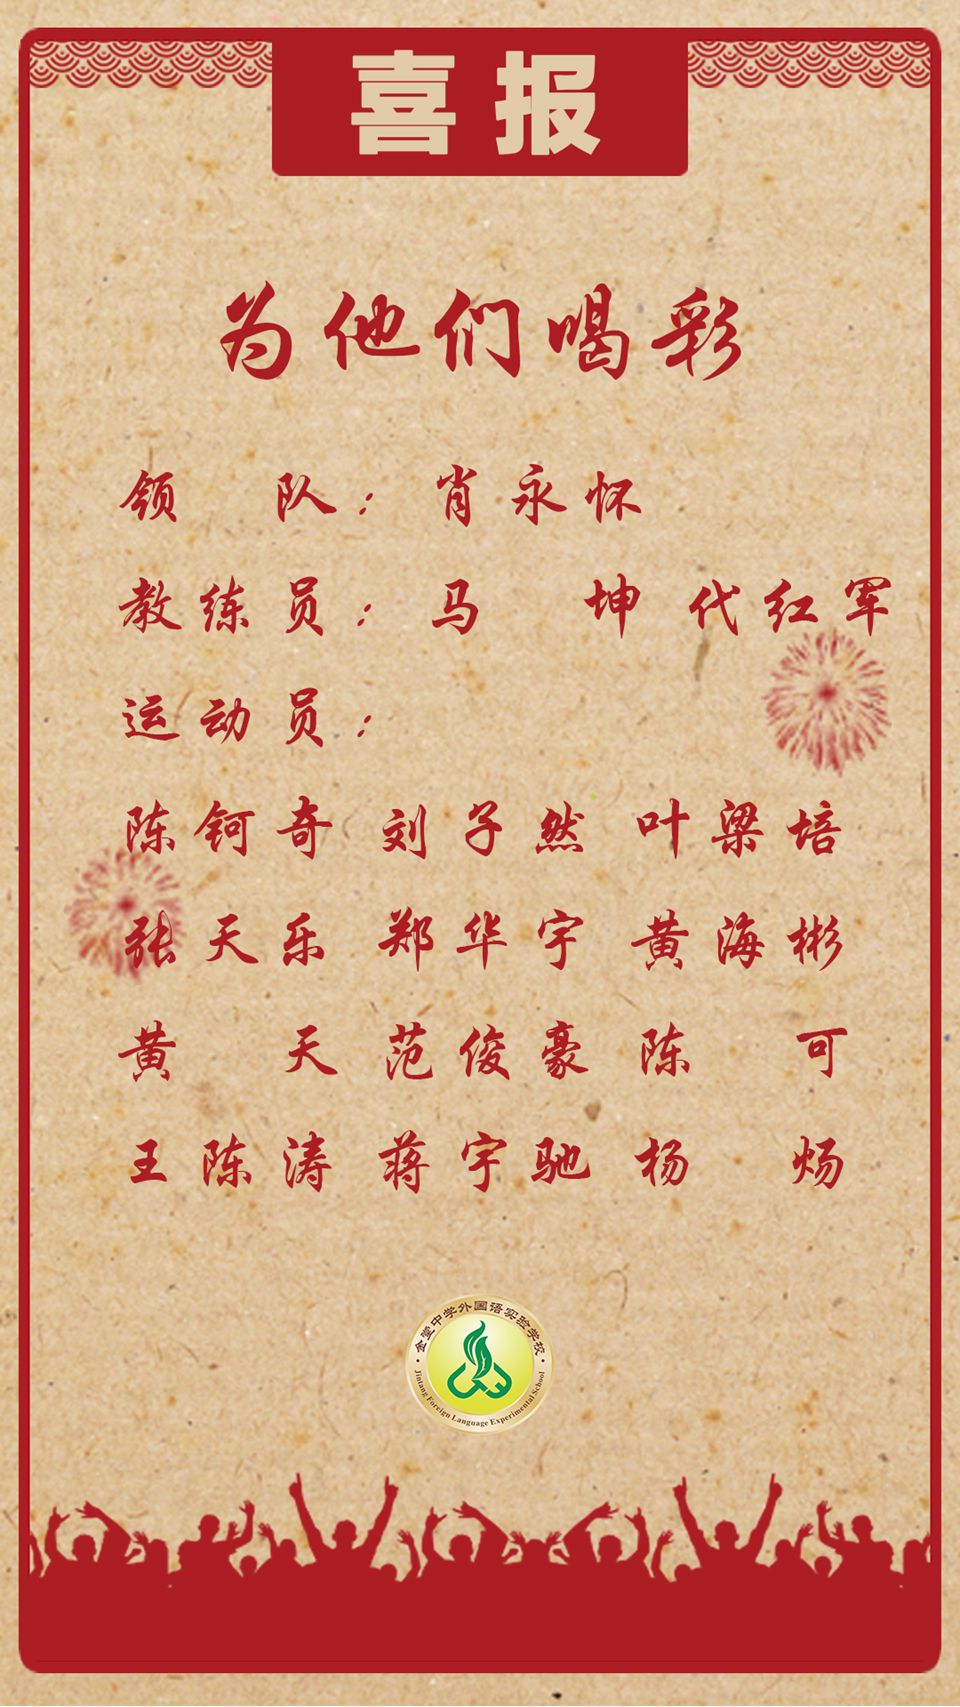 喜报
为他们喝彩
领 队：肖永怀
教练员：马 坤 代红军
运动员：
陈钶奇 刘子然 叶梁培
张天乐 郑华宇 黄海彬
黄 天 范俊豪 陈 可
王陈涛 蒋宇驰 杨 炀
金堂中学外国语实验学校
Jintang Foreign Language Experimental School